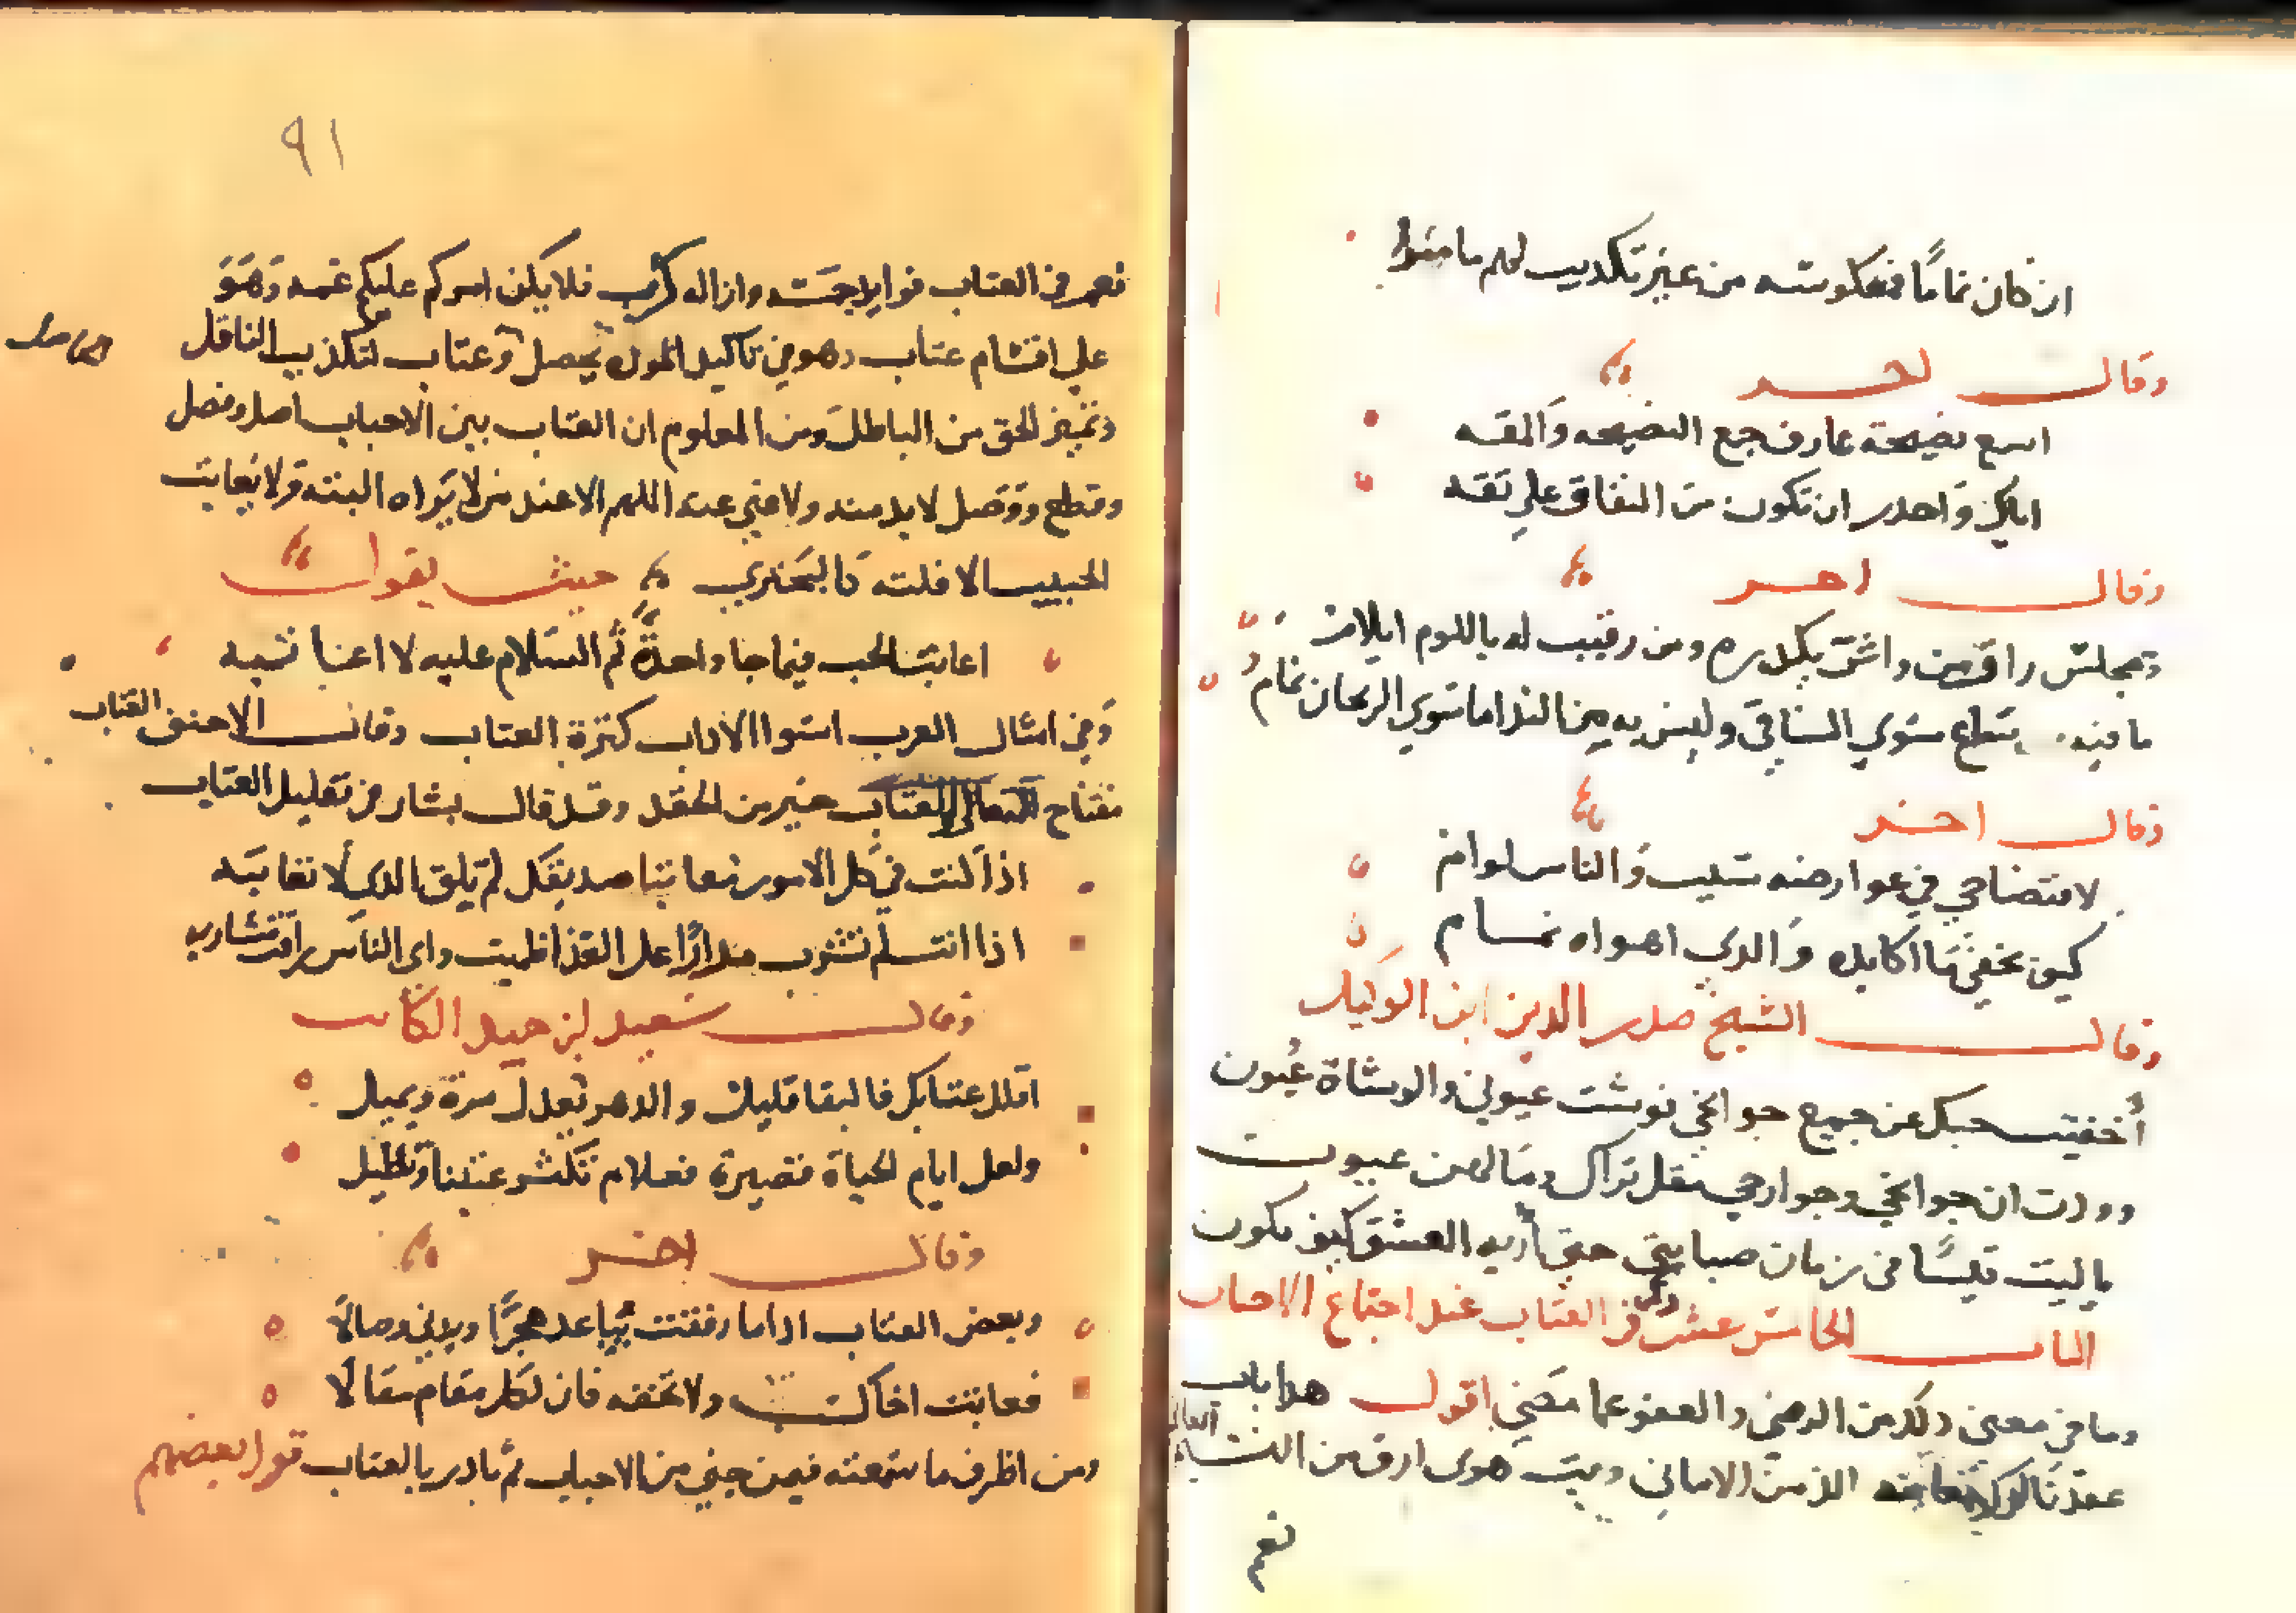 ان كان نماما فعكوسه من غير تكديب لهم ما
وقال اخر
اسمع نصيحة عارف جمع النصيحه والمقه
اياك واحدر ان تكون من النفاق على ثقه
وقال اخر
ومجلس راق من واش يكدره ومن رقيب له باللوم ايلام
ما فيه ساع سوي الساقي وليس به بين النداما سوي الريحان نمام
وقال اخر
لافتضاحي في عوارضه سبب والناس لوام
كيف يخفي ما اكابده والدي اهواه نمام
وقال الشيخ صدر الدين ابن الوكيل
أخفيت حبك عن جميع جوانحي فوشت عيوني والوشاة عيون
ووددت ان جوانحي وجوارحي مقل تراك وما لهن عيون
ياليت قيسا في زمان صبابتي حتي أريه العشق كيف يكون
الباب الخامس عشر في ذكر العتاب عند اجتماع الاحباب
وما في معني ذلك من الرضي والعفو عما مضي اقول هدا باب
عقدناه الذ من الاماني وبيت هوى ارق من
نعم
٩١
نعم في العتاب فوايد جمه وازاله كرب فلا يكن امركم عليكم غمه وهو
علي اقسام عتاب وهو من تاكيد المودة يحصل وعتاب لتكذيب الناقل
وتمييز الحق من الباطل ومن المعلوم ان العتاب بين الاحباب اصل وفصل
وقطع ووصل لا بد منه ولا غني عنه اللهم الا عند من لا يراه البته ولا يعاتب
الحبيب الا فلته كالبحتري حيث يقول
اعاتب الحب فيما جا واحدة ثم السلام عليه لا اعاتبه
وفي امثال العرب اسوا الاداب كثرة العتاب وقال الاحنف العتاب
مفتاح العتاب خير من الحقد وقد قال بشار في تقليل العتاب
اذا كنت في كل الامور معاتبا صديقك لم تلق الدى لا تعاتبه
اذا انت لم تشرب مرارا على القذا ظميت واى الناس مشاربه
وقال سعيد بن حميد الكاتب
اقلل عتابك فالبقا قليل والدهر يعدل مرة ويميل
ولعل ايام الحياة قصيرة فعلام تكثر عتبنا وتطيل
وقال اخر
وبعض العتاب ادا ما رفقت يباعد هجرا ويدني وصالا
فعاتب اخاك ولا تجفه فان لكل مقام مقالا
ومن اظرف ما سمعته فيمن جني من الاحباب ثم بادر بالعتاب قول بعضهم